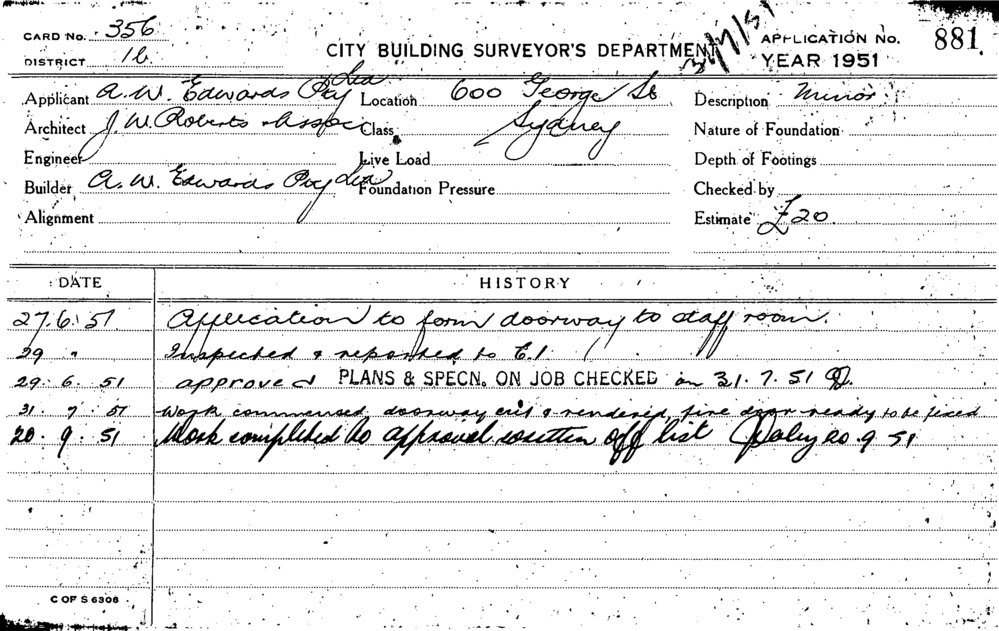 CARD No. 356
DISTRICT 1b
CITY BUILDING SURVEYOR'S DEPARTMENT
31/7/51
APPLICATION No. 881
YEAR 1951
Applicant A. W. Edwards Pty Ltd
Location 600 George St
Sydney
Description Minor
Architect J. W. Roberts & Assoc
Class
Nature of Foundation
Engineer
Live Load
Depth of Footings
Builder A. W. Edwards Pty Ltd
Foundation Pressure
Checked by
Alignment
Estimate £20
DATE HISTORY
27.6.51 Application to form doorway to staff room.
29 " Inspected & reported to E.I.
29. 6. 51 approved PLANS & SPECN. ON JOB CHECKED on 31. 7. 51
31. 7. 51 Work commenced, doorway cut & rendered, fire door ready to be fixed
20. 9. 51 Work completed to approval written off list 20. 9. 51
C OF S 6306